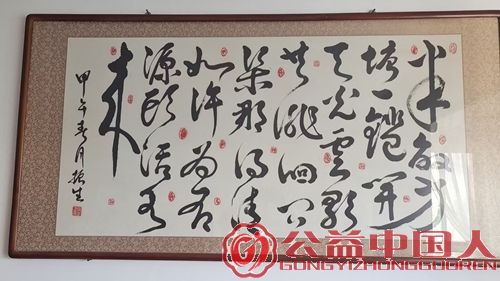 半畝方
塘一鑑開
天光雲影
共徘徊问
渠那得清
如许为有
源头活水
来
甲午春月振生
公益中国人
GONGYIZHONGGUOREN